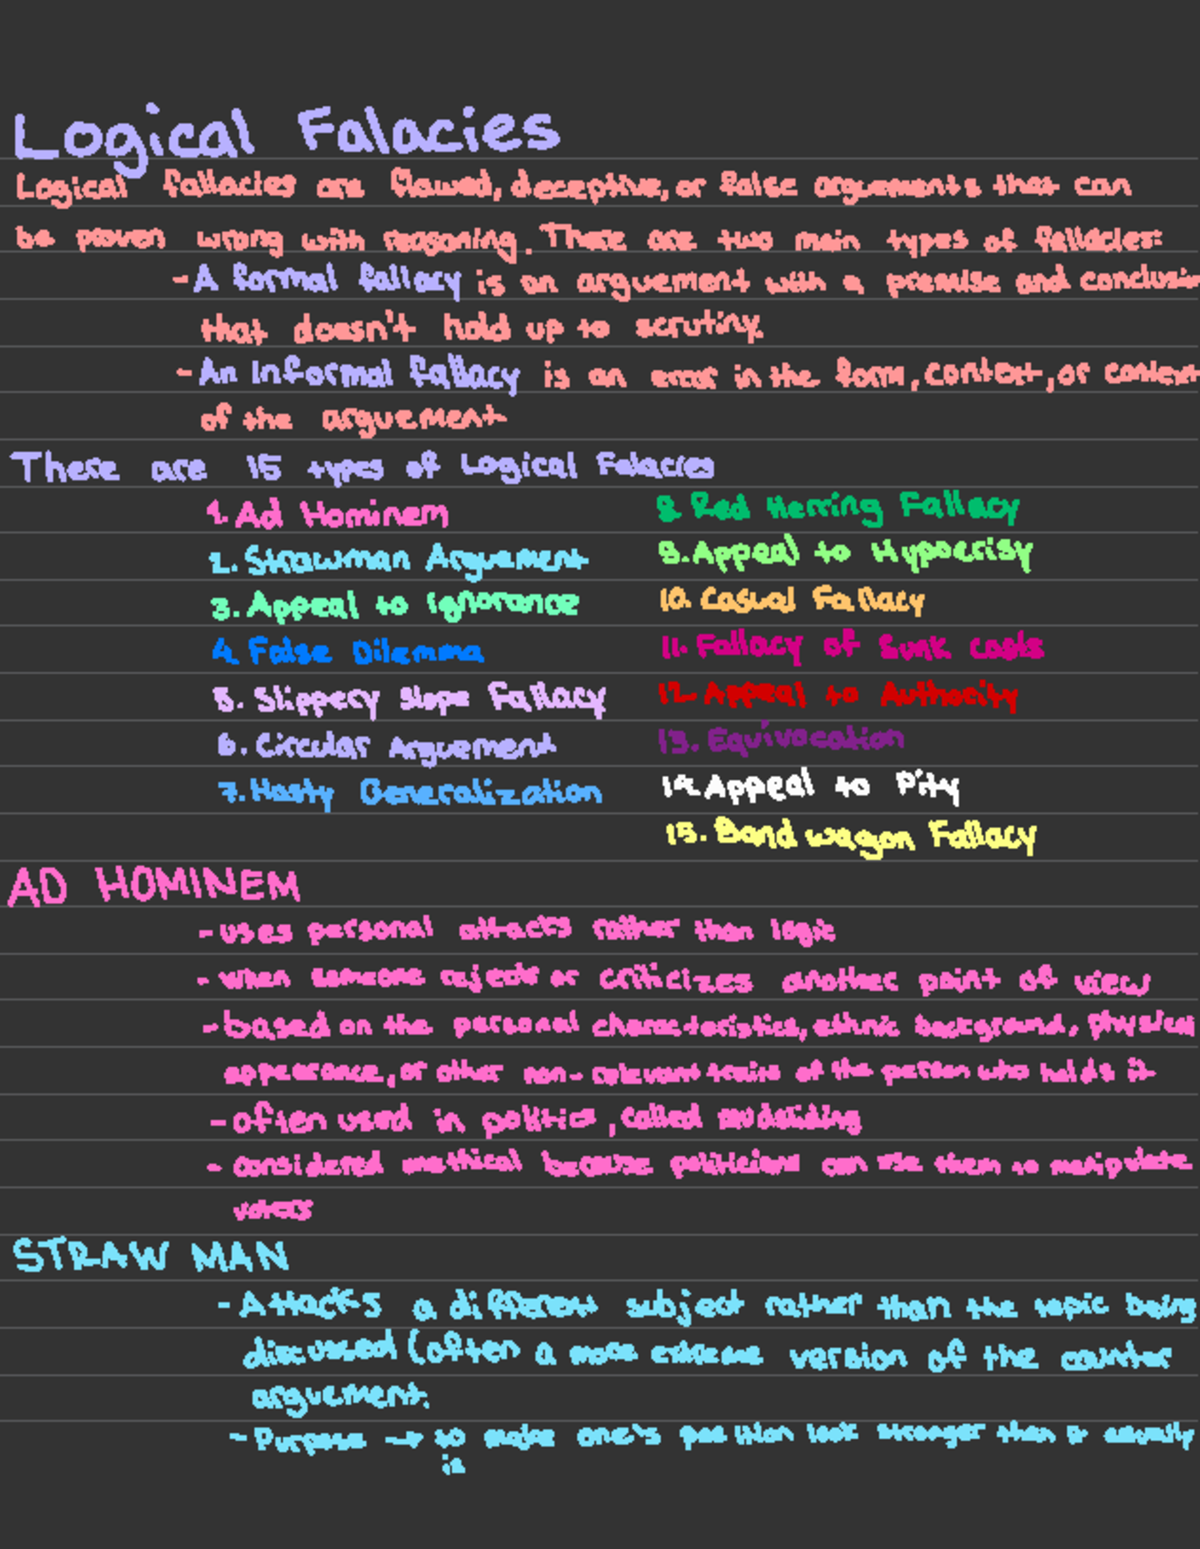 Logical Falacies
Logical fallacies are flawed, deceptive, or false arguements that can
be proven wrong with reasoning. There are two main types of fallacies:
- A formal fallacy is an arguement with a premise and conclusio
that doesn't hold up to scrutiny.
- An Informal fallacy is an error in the form, context, or context
of the arguement
There are 15 types of Logical Falacies
1. Ad Hominem
2. Strawman Arguement
3. Appeal to Ignorance
4. False Dilemma
5. Slippery Slope Fallacy
6. Circular Arguement
7. Hasty Generalization
8. Red Herring Fallacy
9. Appeal to Hypocrisy
10. Casual Fallacy
11. Fallacy of Sunk Costs
12. Appeal to Authority
13. Equivocation
14. Appeal to Pity
15. Band wagon Fallacy
AD HOMINEM
- uses personal attacks rather than logic
- when someone rejects or criticizes another point of view
- based on the personal characteristics, ethnic background, physical
appearance, or other non-relevant traits of the person who holds it
- often used in politics, called mudsliding
- considered unethical because politicians can use them to manipulate
voters
STRAW MAN
- Attacks a different subject rather than the topic being
discussed (often a more extreme version of the counter
arguement.
- Purpose → to make one's position look stronger than it actually
is